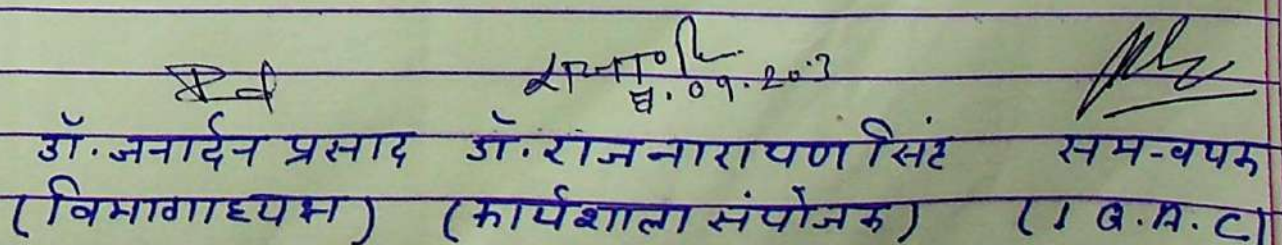 08.09.2023
डॉ. जनार्दन प्रसाद डॉ. राजनारायण सिंह समन्वयक
(विभागाध्यक्ष) (कार्यशाला संयोजक) (I Q. A. C)